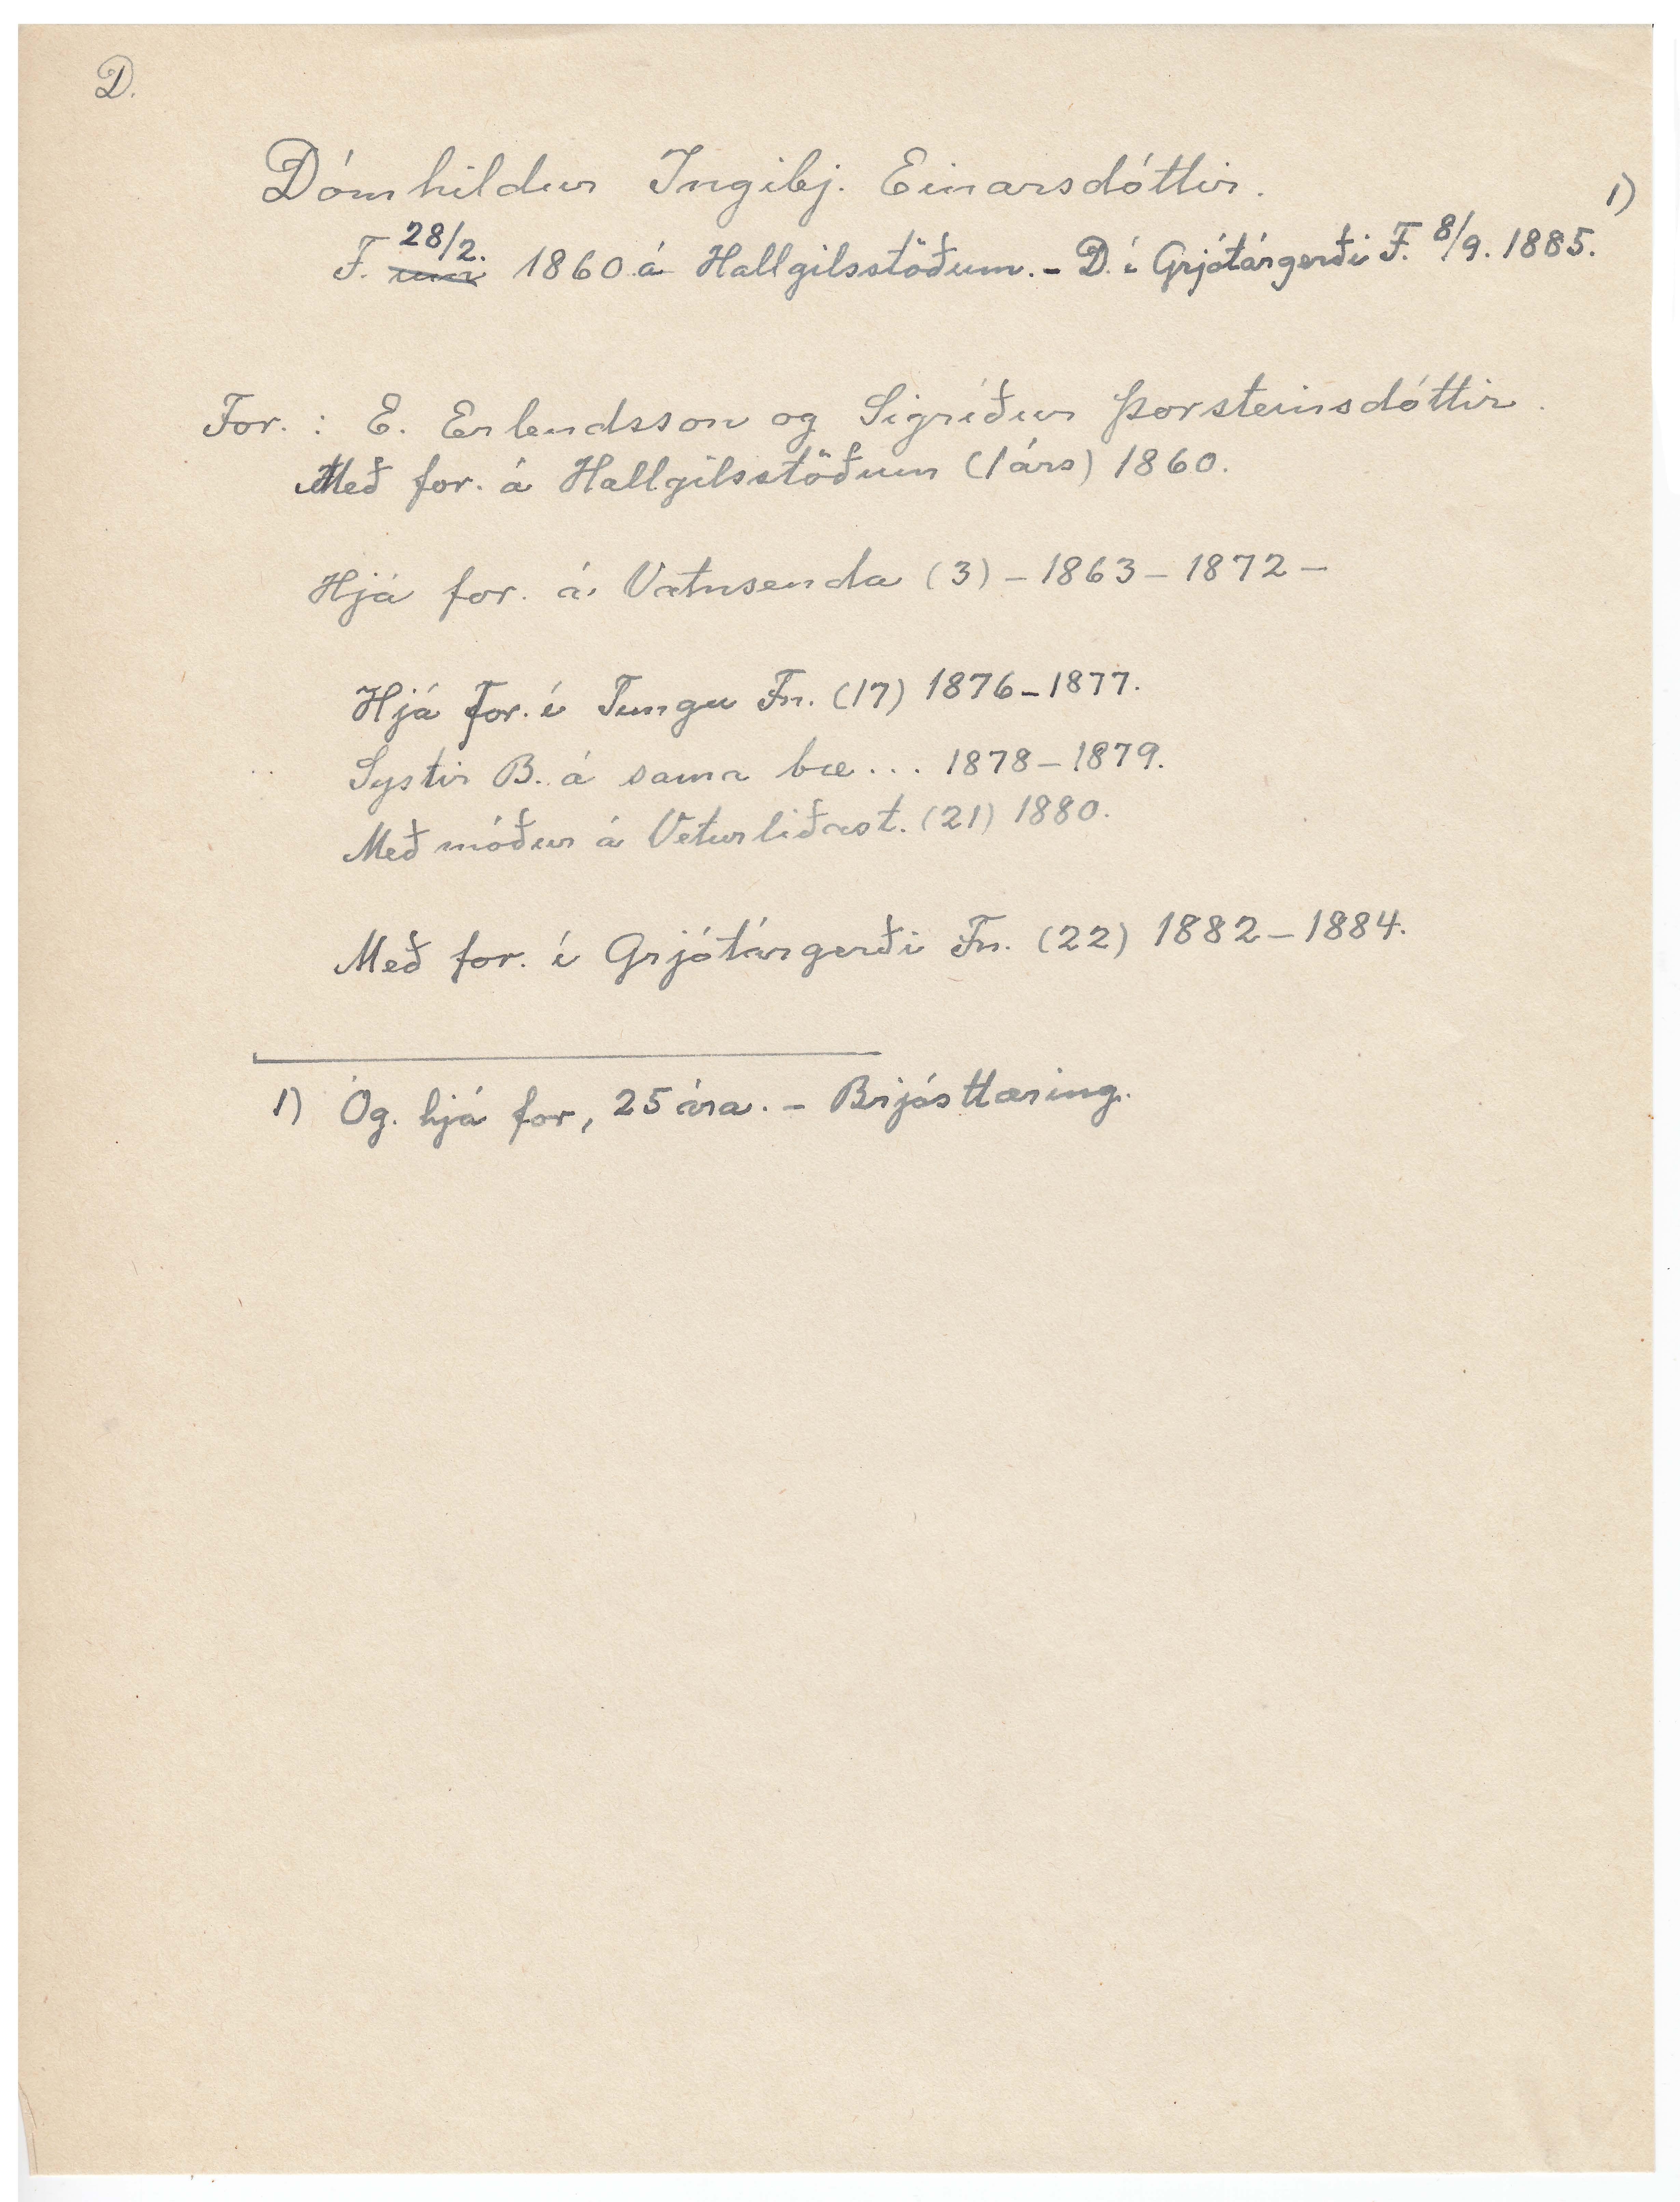 D.
Dómhildur Ingibj. Einarsdóttir.
F. 28/2. 1860 á Hallgilsstöðum. - D. í Grjótárgerði F. 8/9. 1885. 1)
For. : E. Erlendsson og Sigríður Þorsteinsdóttir.
Með for. á Hallgilsstöðum (1 árs) 1860.
Hjá for. á Vatnsenda (3) - 1863 - 1872 -
Hjá for. í Tungu Fn. (17) 1876 - 1877.
Systir B. á sama bæ... 1878 - 1879.
Með móður á Veturliðast. (21) 1880.
Með for. í Grjótárgerði Fn. (22) 1882 - 1884.
1) Óg. hjá for, 25 ára. - Brjósttæring.